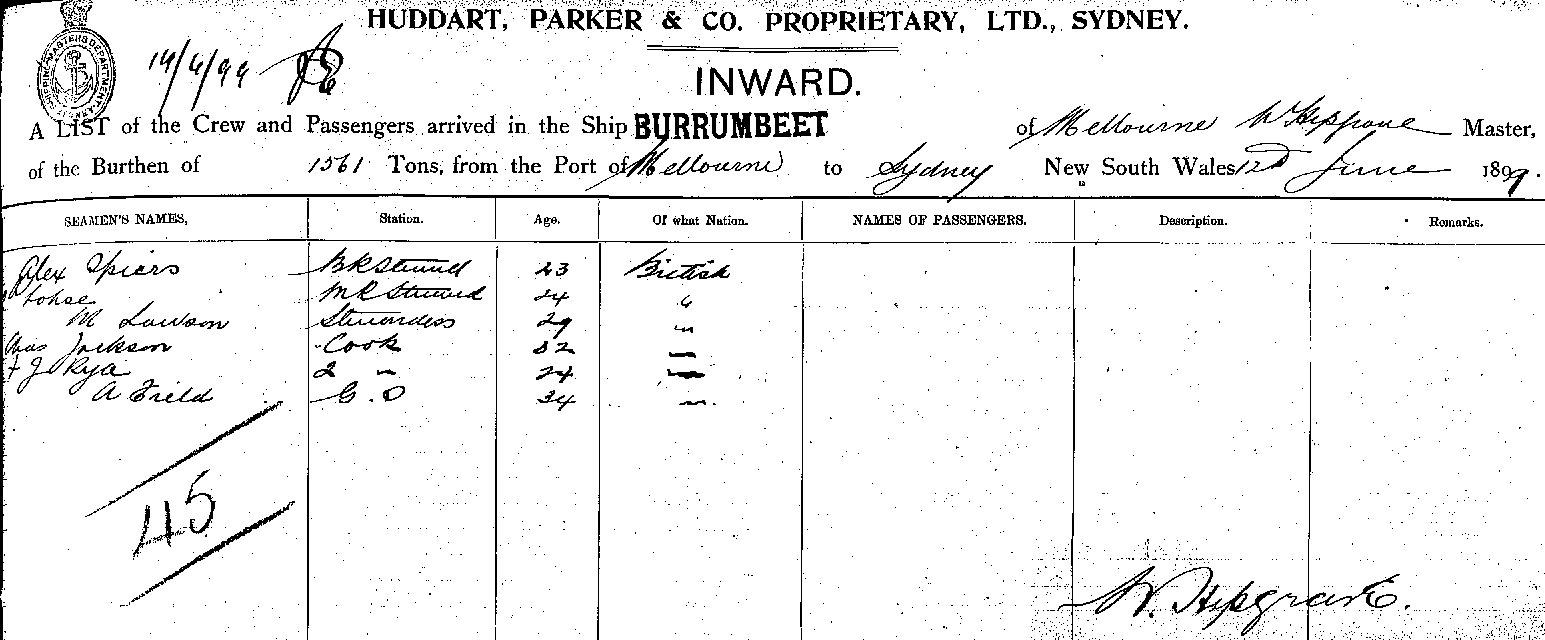 HUDDART, PARKER & CO. PROPRIETARY, LTD., SYDNEY.
SHIPPING MASTERS DEPARTMENT
INWARD.
A LIST of the Crew and Passengers arrived in the Ship BURRUMBEET of Melbourne W Hipgrave Master,
of the Burthen of 1561 Tons, from the Port of Melbourne to Sydney New South Wales 12th June 1899.
SEAMEN'S NAMES, Station. Age. Of what Nation. NAMES OF PASSENGERS. Description. Remarks.
Alex Spiers BR Steward 23 British
Lohse MR Steward 24 "
M Lawson Stewardess 29 "
Chas Jackson Cook 32 "
J Rya 2 " 24 "
A Field 34 "
45
W. Hipgrave.